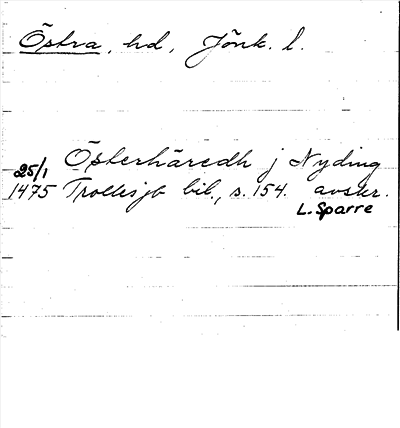 Östra, hd, Jönk. l.
25/1 Österhäredh j Nyding
1475 Trollesjb bil., s. 154. avskr.
L. Sparre